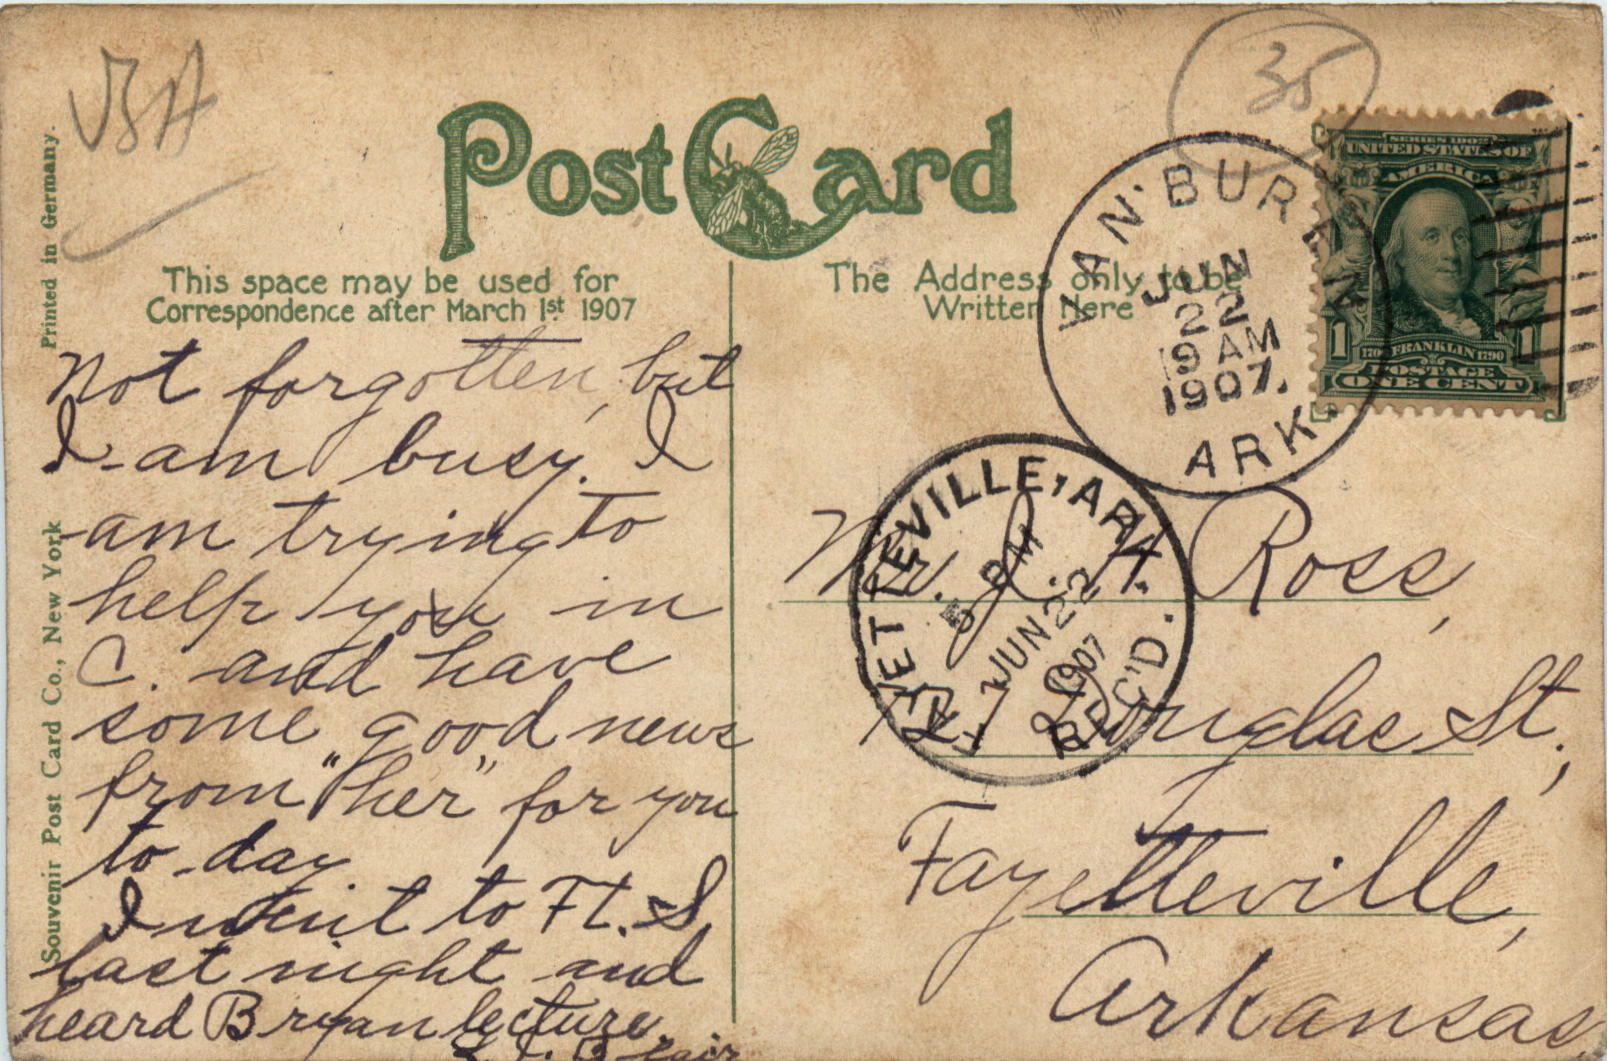 VBA
35
Post Card
This space may be used for
Correspondence after March 1st 1907
The Address only to be
Written Here
Printed in Germany.
Souvenir Post Card Co., New York
VAN BUREN
JUN
22
9 AM
1907.
ARK
SERIES 1902
UNITED STATES OF
AMERICA
1 1
1706 FRANKLIN 1790
POSTAGE
ONE CENT
FAYETTEVILLE, ARK.
5 PM
JUN 22
1907
REC'D.
Not forgotten, but
I am busy. I
am trying to
help you in
C. and have
some good news
from "her" for you
to-day
I went to Ft. S
last night and
heard Bryan lecture.
Blair
Mr. J. H. Ross,
Douglas St.,
Fayetteville,
Arkansas